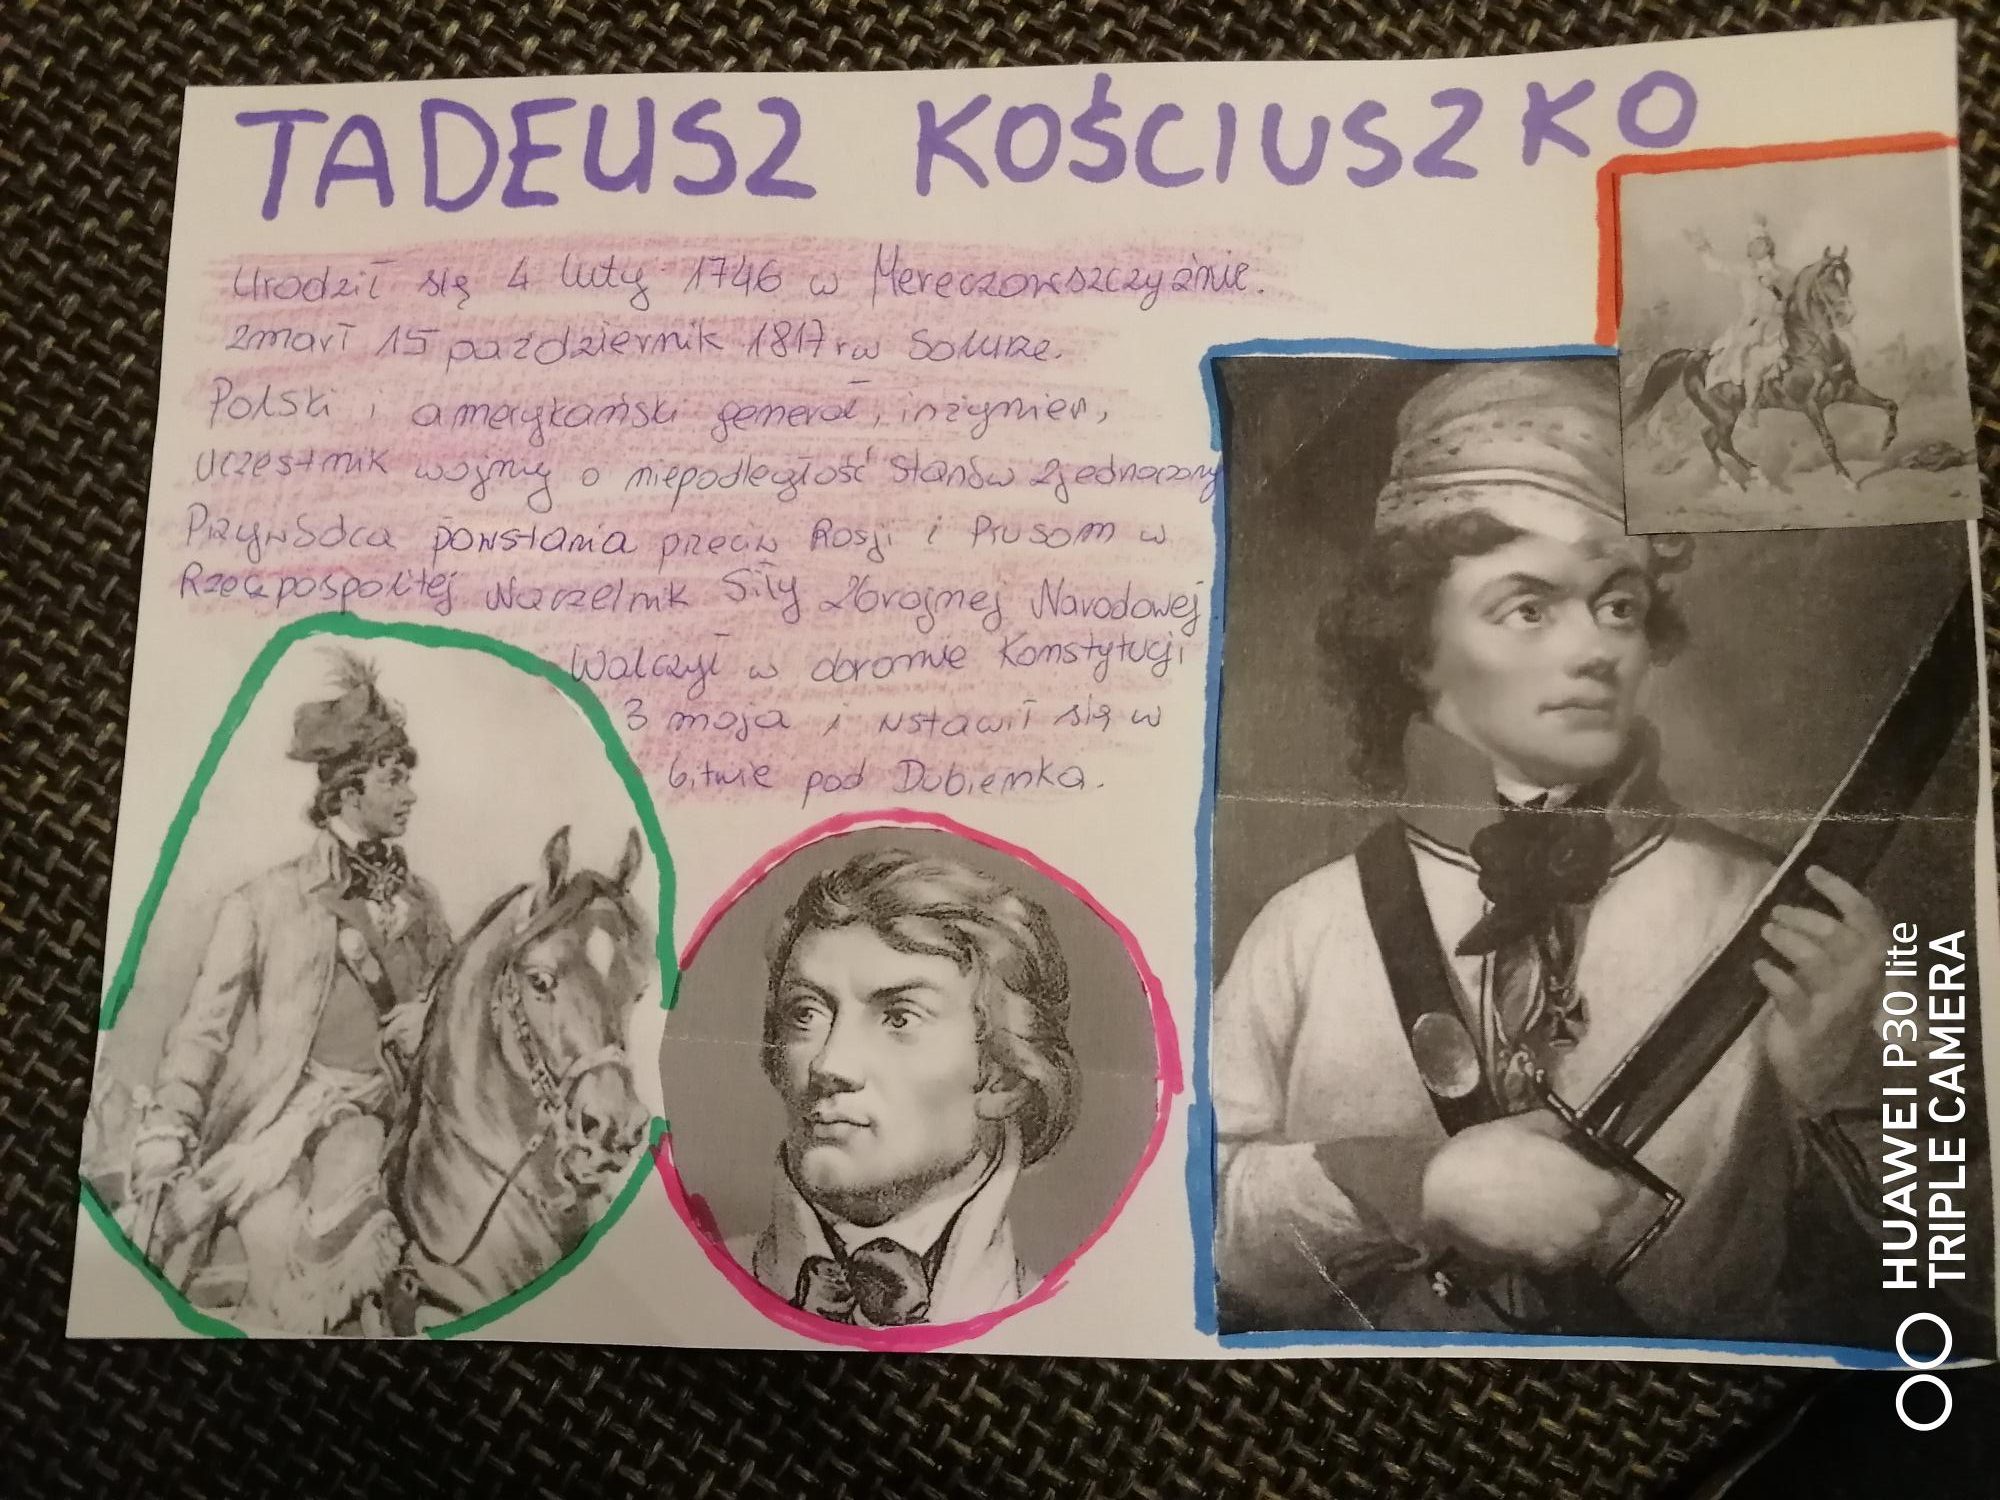 TADEUSZ KOŚCIUSZKO
Urodził się 4 luty 1746 w Mereczowszczyźnie.
Zmarł 15 październik 1817r w Solurze.
Polski i amerykański generał, inżynier,
uczestnik wojny o niepodległość Stanów Zjednoczony
Przywódca powstania przeciw Rosji i Prusom w
Rzeczpospolitej Naczelnik Siły Zbrojnej Narodowej
Walczył w obronie Konstytucji
3 maja i wstawił się w
bitwie pod Dubienka.
HUAWEI P30 lite
TRIPLE CAMERA